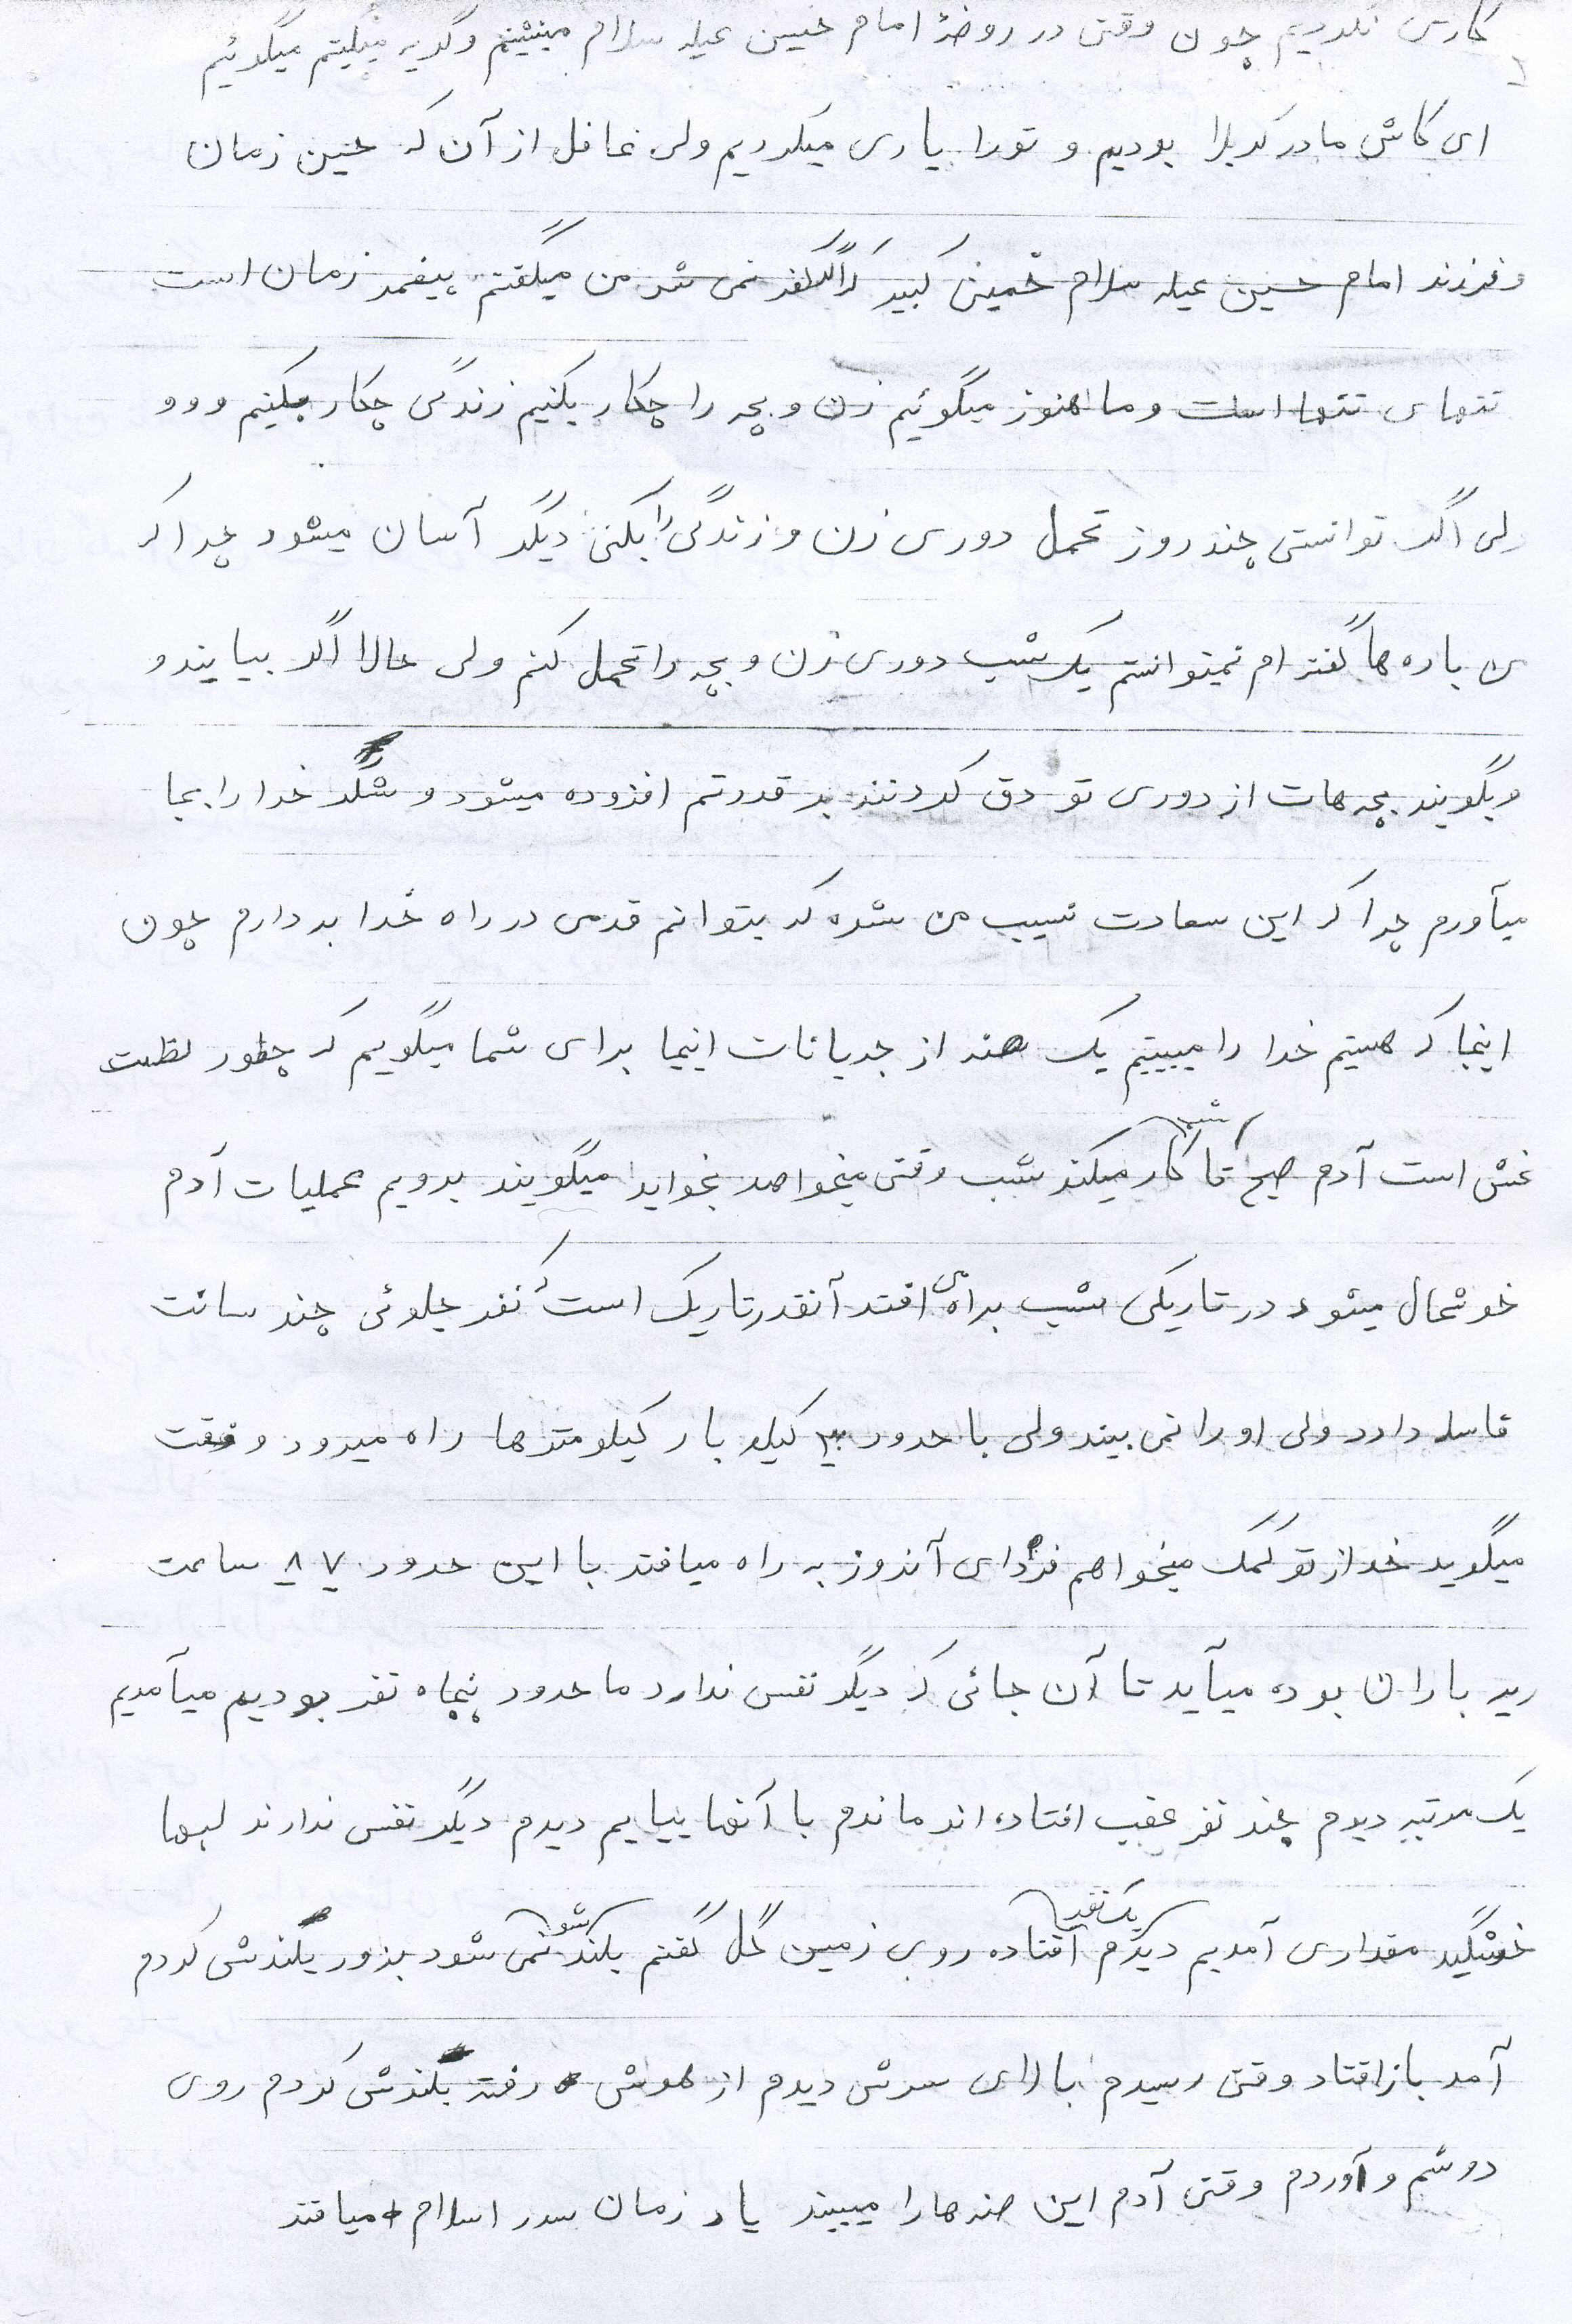 کاری نکردیم چون وقتی در روضهٔ امام حسین علیه سلام مینشینم و گریه میکنیم میگوئیم
ای کاش ما در کربلا بودیم و تو را یاری میکردیم ولی غافل از آن که حسین زمان
و فرزند امام حسین علیه سلام خمینی کبیر که اگر کفر نمی شد من میگفتم پیغمبر زمان است
تنهای تنها است و ما هنوز میگوئیم زن و بچه را چکار بکنیم زندگی چکار بکنیم و و و
ولی اگر توانستی چند روز تحمل دوری زن و زندگی را بکنی دیگر آسان میشود چرا که
من باره ها گفته ام نمیتوانستم یک شب دوری زن و بچه را تحمل کنم ولی حالا اگر بیایند و
و بگویند بچه هات از دوری تو دق کردنند بر قدرتم افزوده میشود و شکر خدا را بجا
میآورم چرا که این سعادت نسیب من شده که بتوانم قدمی در راه خدا بردارم چون
اینجا که هستیم خدا را میبینیم یک صنه از جریانات اینجا برای شما میگویم که چطور لظت
بخش است آدم صبح تا شب کار میکند شب وقتی میخواهد بخوابد میگویند برویم عملیات آدم
خوشحال میشود در تاریکی شب براه می افتد آنقدر تاریک است که نفر جلوئی چند سانت
فاسله دارد ولی او را نمی بیند ولی با حدود ۳۰ کیلو بار کیلومترها راه میرود و وقت
میگوید خدا از تو کمک میخواهم فردای آنروز به راه میافتد با این حدود ۷ ۸ ساعت
زیر باران بوده میآید تا آن جائی که دیگر نفس ندارد ما حدود پنجاه نفر بودیم میآمدیم
یک مرتبه دیدم چند نفر عقب افتاده اند ماندم با آنها بیایم دیدم دیگر نفس ندارند لبها
خوشگید مقداری آمدیم دیدم یک نفر افتاده روی زمین گل گفتم بلند شو نمی شود بزور بلندش کردم
آمد باز افتاد وقتی رسیدم بالای سرش دیدم از هوش رفته بلندش کردم روی
دوشم و آوردم وقتی آدم این صنه ها را میبیند یاد زمان سدر اسلام میافتد